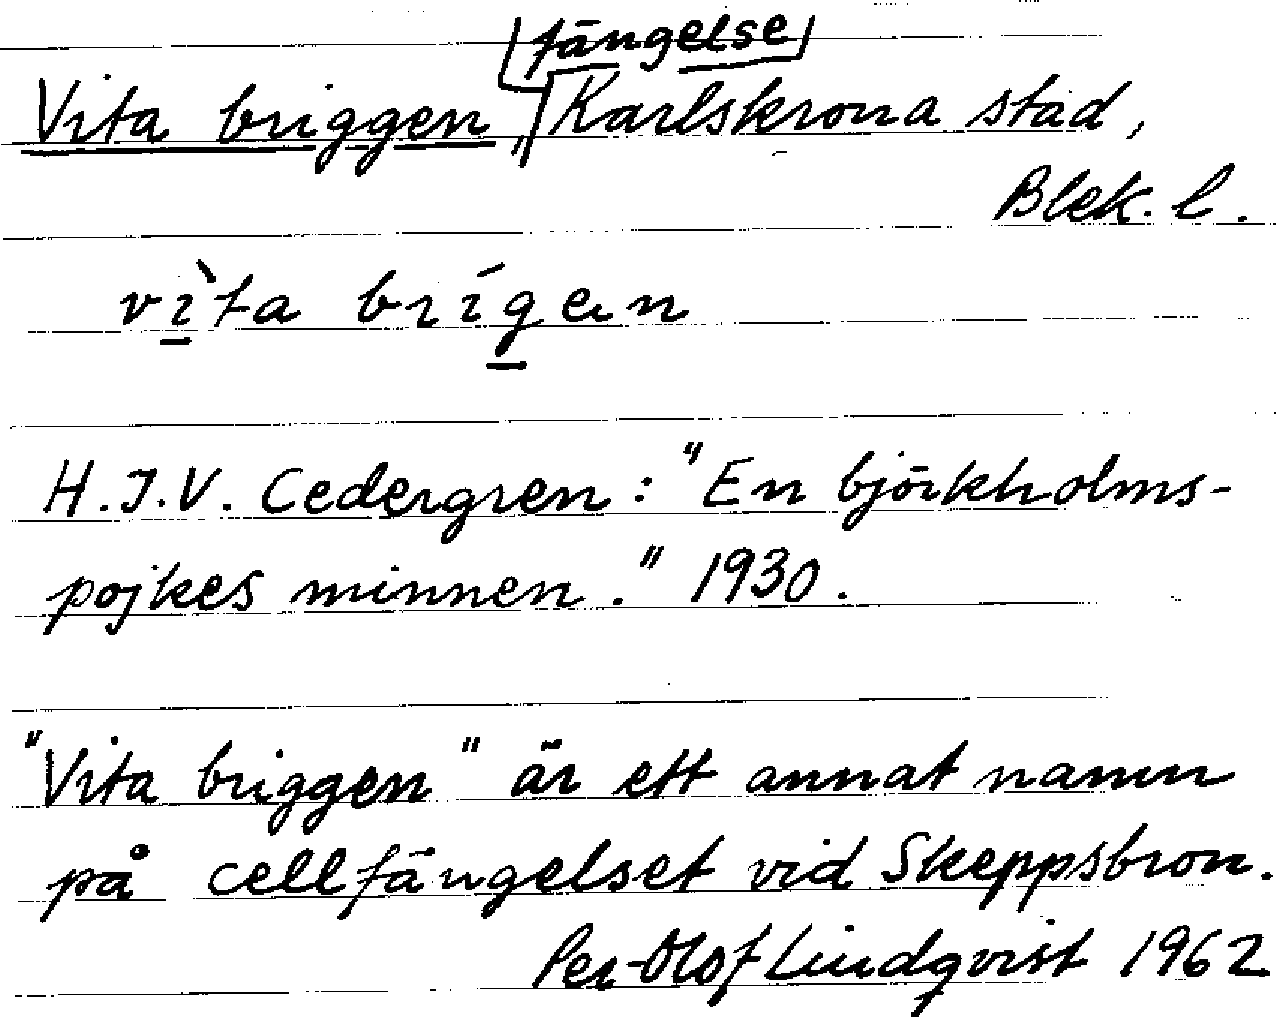 fängelse
Vita briggen, Karlskrona stad,
Blek. l.
vìta brígen
H.J.V. Cedergren: "En björkholms-
pojkes minnen." 1930.
"Vita briggen" är ett annat namn
på cellfängelset vid Skeppsbron.
Per-Olof Lindqvist 1962